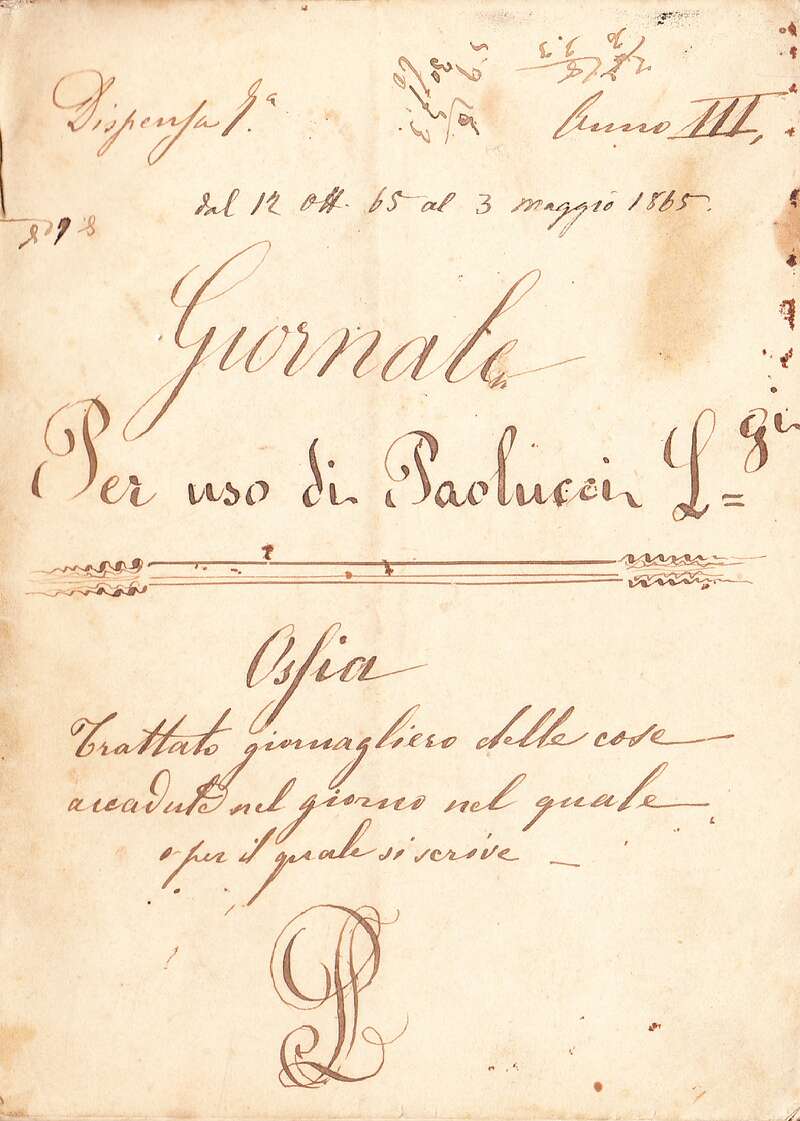 Dispensa 1.ª Anno III,
dal 12 Ott. 65 al 3 maggio 1865.
Giornale
Per uso di Paolucci L.gi
Ossia
Trattato giornagliero delle cose
accadute nel giorno nel quale
o per il quale si scrive
PL